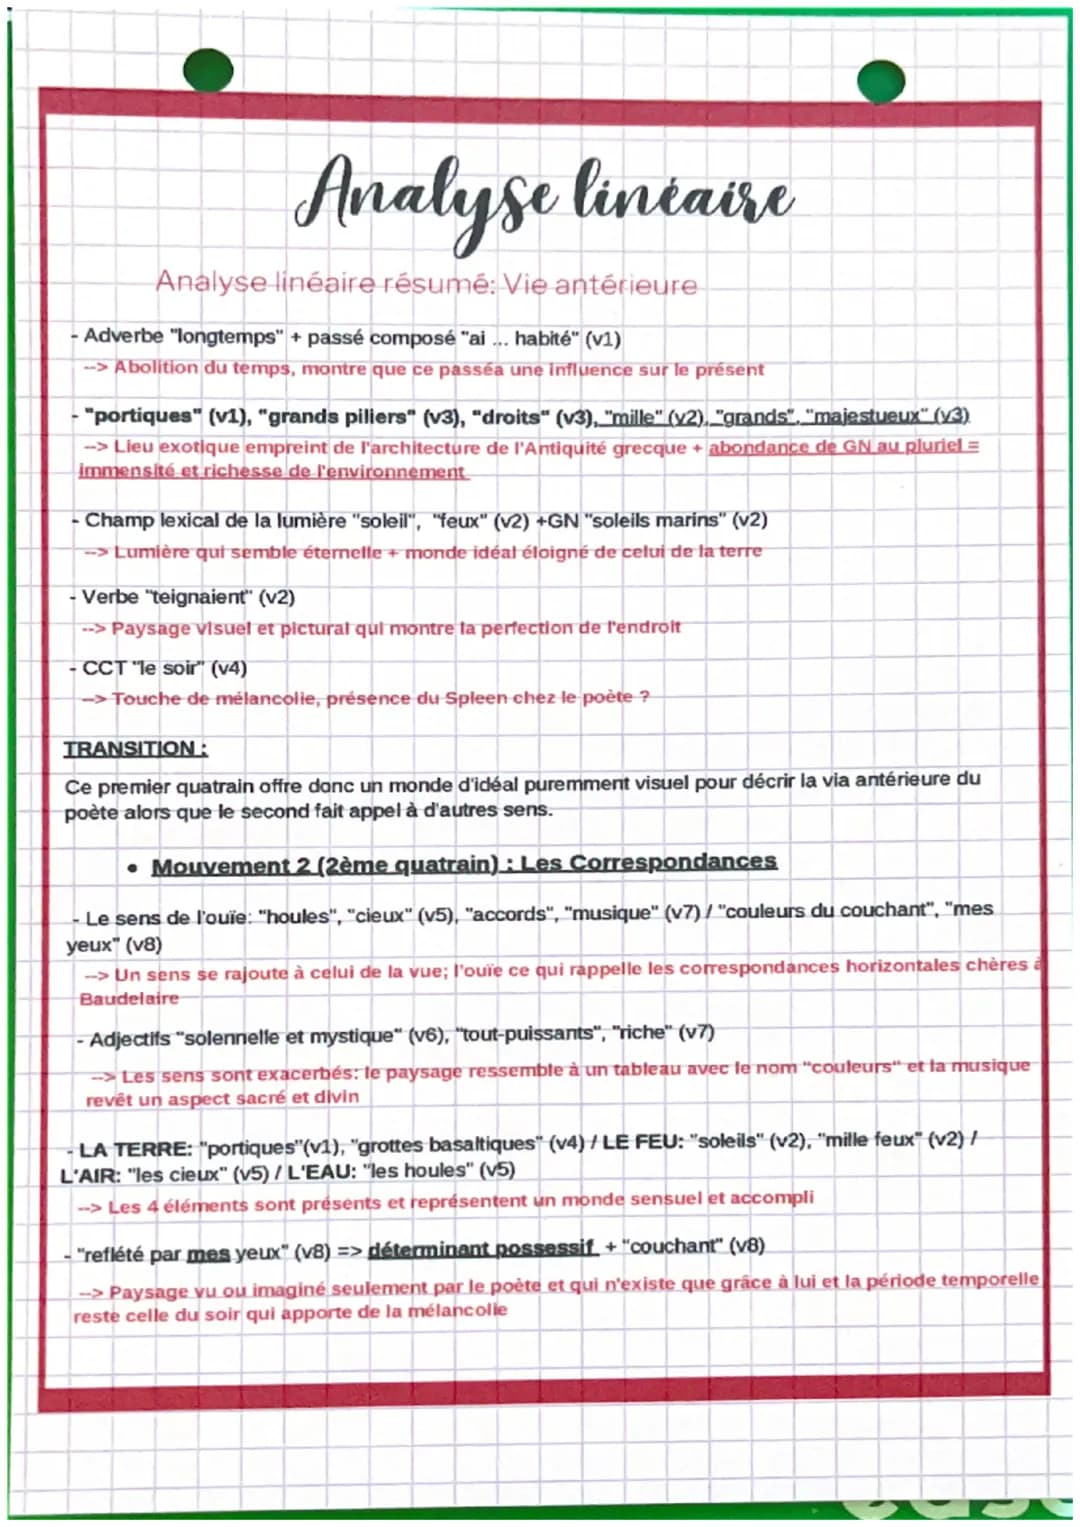 Analyse linéaire
Analyse linéaire résumé: Vie antérieure
- Adverbe "longtemps" + passé composé "ai ... habité" (v1)
--> Abolition du temps, montre que ce passéa une influence sur le présent
- "portiques" (v1), "grands piliers" (v3), "droits" (v3), "mille" (v2), "grands", "majestueux" (v3)
--> Lieu exotique empreint de l'architecture de l'Antiquité grecque + abondance de GN au pluriel =
immensité et richesse de l'environnement
- Champ lexical de la lumière "soleil", "feux" (v2) +GN "soleils marins" (v2)
--> Lumière qui semble éternelle + monde idéal éloigné de celui de la terre
- Verbe "teignaient" (v2)
--> Paysage visuel et pictural qui montre la perfection de l'endroit
- CCT "le soir" (v4)
--> Touche de mélancolie, présence du Spleen chez le poète ?
TRANSITION :
Ce premier quatrain offre donc un monde d'idéal puremment visuel pour décrir la via antérieure du
poète alors que le second fait appel à d'autres sens.
• Mouvement 2 (2ème quatrain) : Les Correspondances
- Le sens de l'ouïe: "houles", "cieux" (v5), "accords", "musique" (v7) / "couleurs du couchant", "mes
yeux" (v8)
--> Un sens se rajoute à celui de la vue; l'ouïe ce qui rappelle les correspondances horizontales chères à
Baudelaire
- Adjectifs "solennelle et mystique" (v6), "tout-puissants", "riche" (v7)
--> Les sens sont exacerbés: le paysage ressemble à un tableau avec le nom "couleurs" et la musique
revêt un aspect sacré et divin
- LA TERRE: "portiques"(v1), "grottes basaltiques" (v4) / LE FEU: "soleils" (v2), "mille feux" (v2) /
L'AIR: "les cieux" (v5) / L'EAU: "les houles" (v5)
--> Les 4 éléments sont présents et représentent un monde sensuel et accompli
- "reflété par mes yeux" (v8) => déterminant possessif + "couchant" (v8)
--> Paysage vu ou imaginé seulement par le poète et qui n'existe que grâce à lui et la période temporelle
reste celle du soir qui apporte de la mélancolie